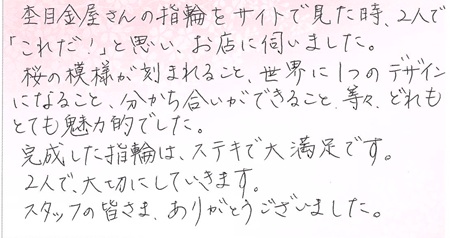 杢目金屋さんの指輪をサイトで見た時、2人で
「これだ！」と思い、お店に伺いました。
桜の模様が刻まれること、世界に1つのデザイン
になること、分かち合いができること、等々、どれも
とても魅力的でした。
完成した指輪は、ステキで大満足です。
2人で、大切にしていきます。
スタッフの皆さま、ありがとうございました。